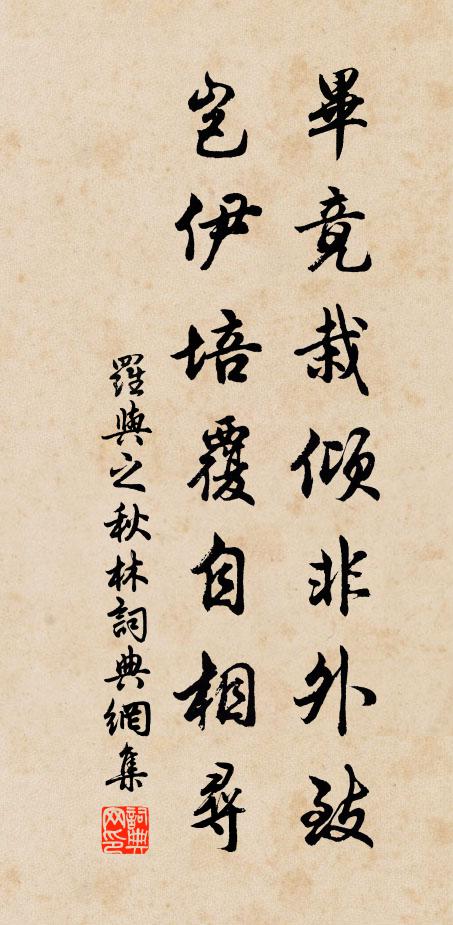 畢竟栽傾非外致
豈伊培覆自相尋
羅與之秋林詞典網集
詞典网印